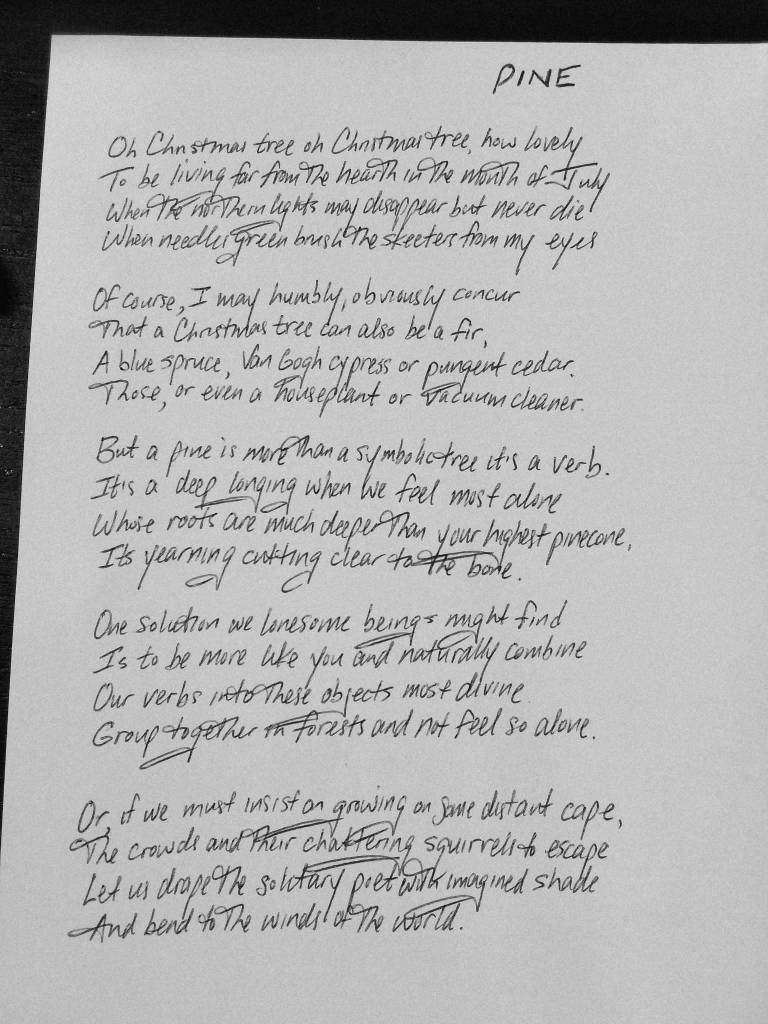 PINE
Oh Christmas tree oh Christmas tree, how lovely
To be living far from the hearth in the month of July
When the northern lights may disappear but never die
When needles green brush the skeeters from my eyes
Of course, I may humbly, obviously concur
That a Christmas tree can also be a fir,
A blue spruce, Van Gogh cypress or pungent cedar.
Those, or even a houseplant or vacuum cleaner.
But a pine is more than a symbolic tree it's a verb.
It's a deep longing when we feel most alone
Whose roots are much deeper than your highest pinecone,
It's yearning cutting clear to the bone.
One solution we lonesome beings might find
Is to be more like you and naturally combine
Our verbs into these objects most divine
Group together in forests and not feel so alone.
Or, if we must insist on growing on some distant cape,
The crowds and their chattering squirrels to escape
Let us drape the solitary poet with imagined shade
And bend to the winds of the world.